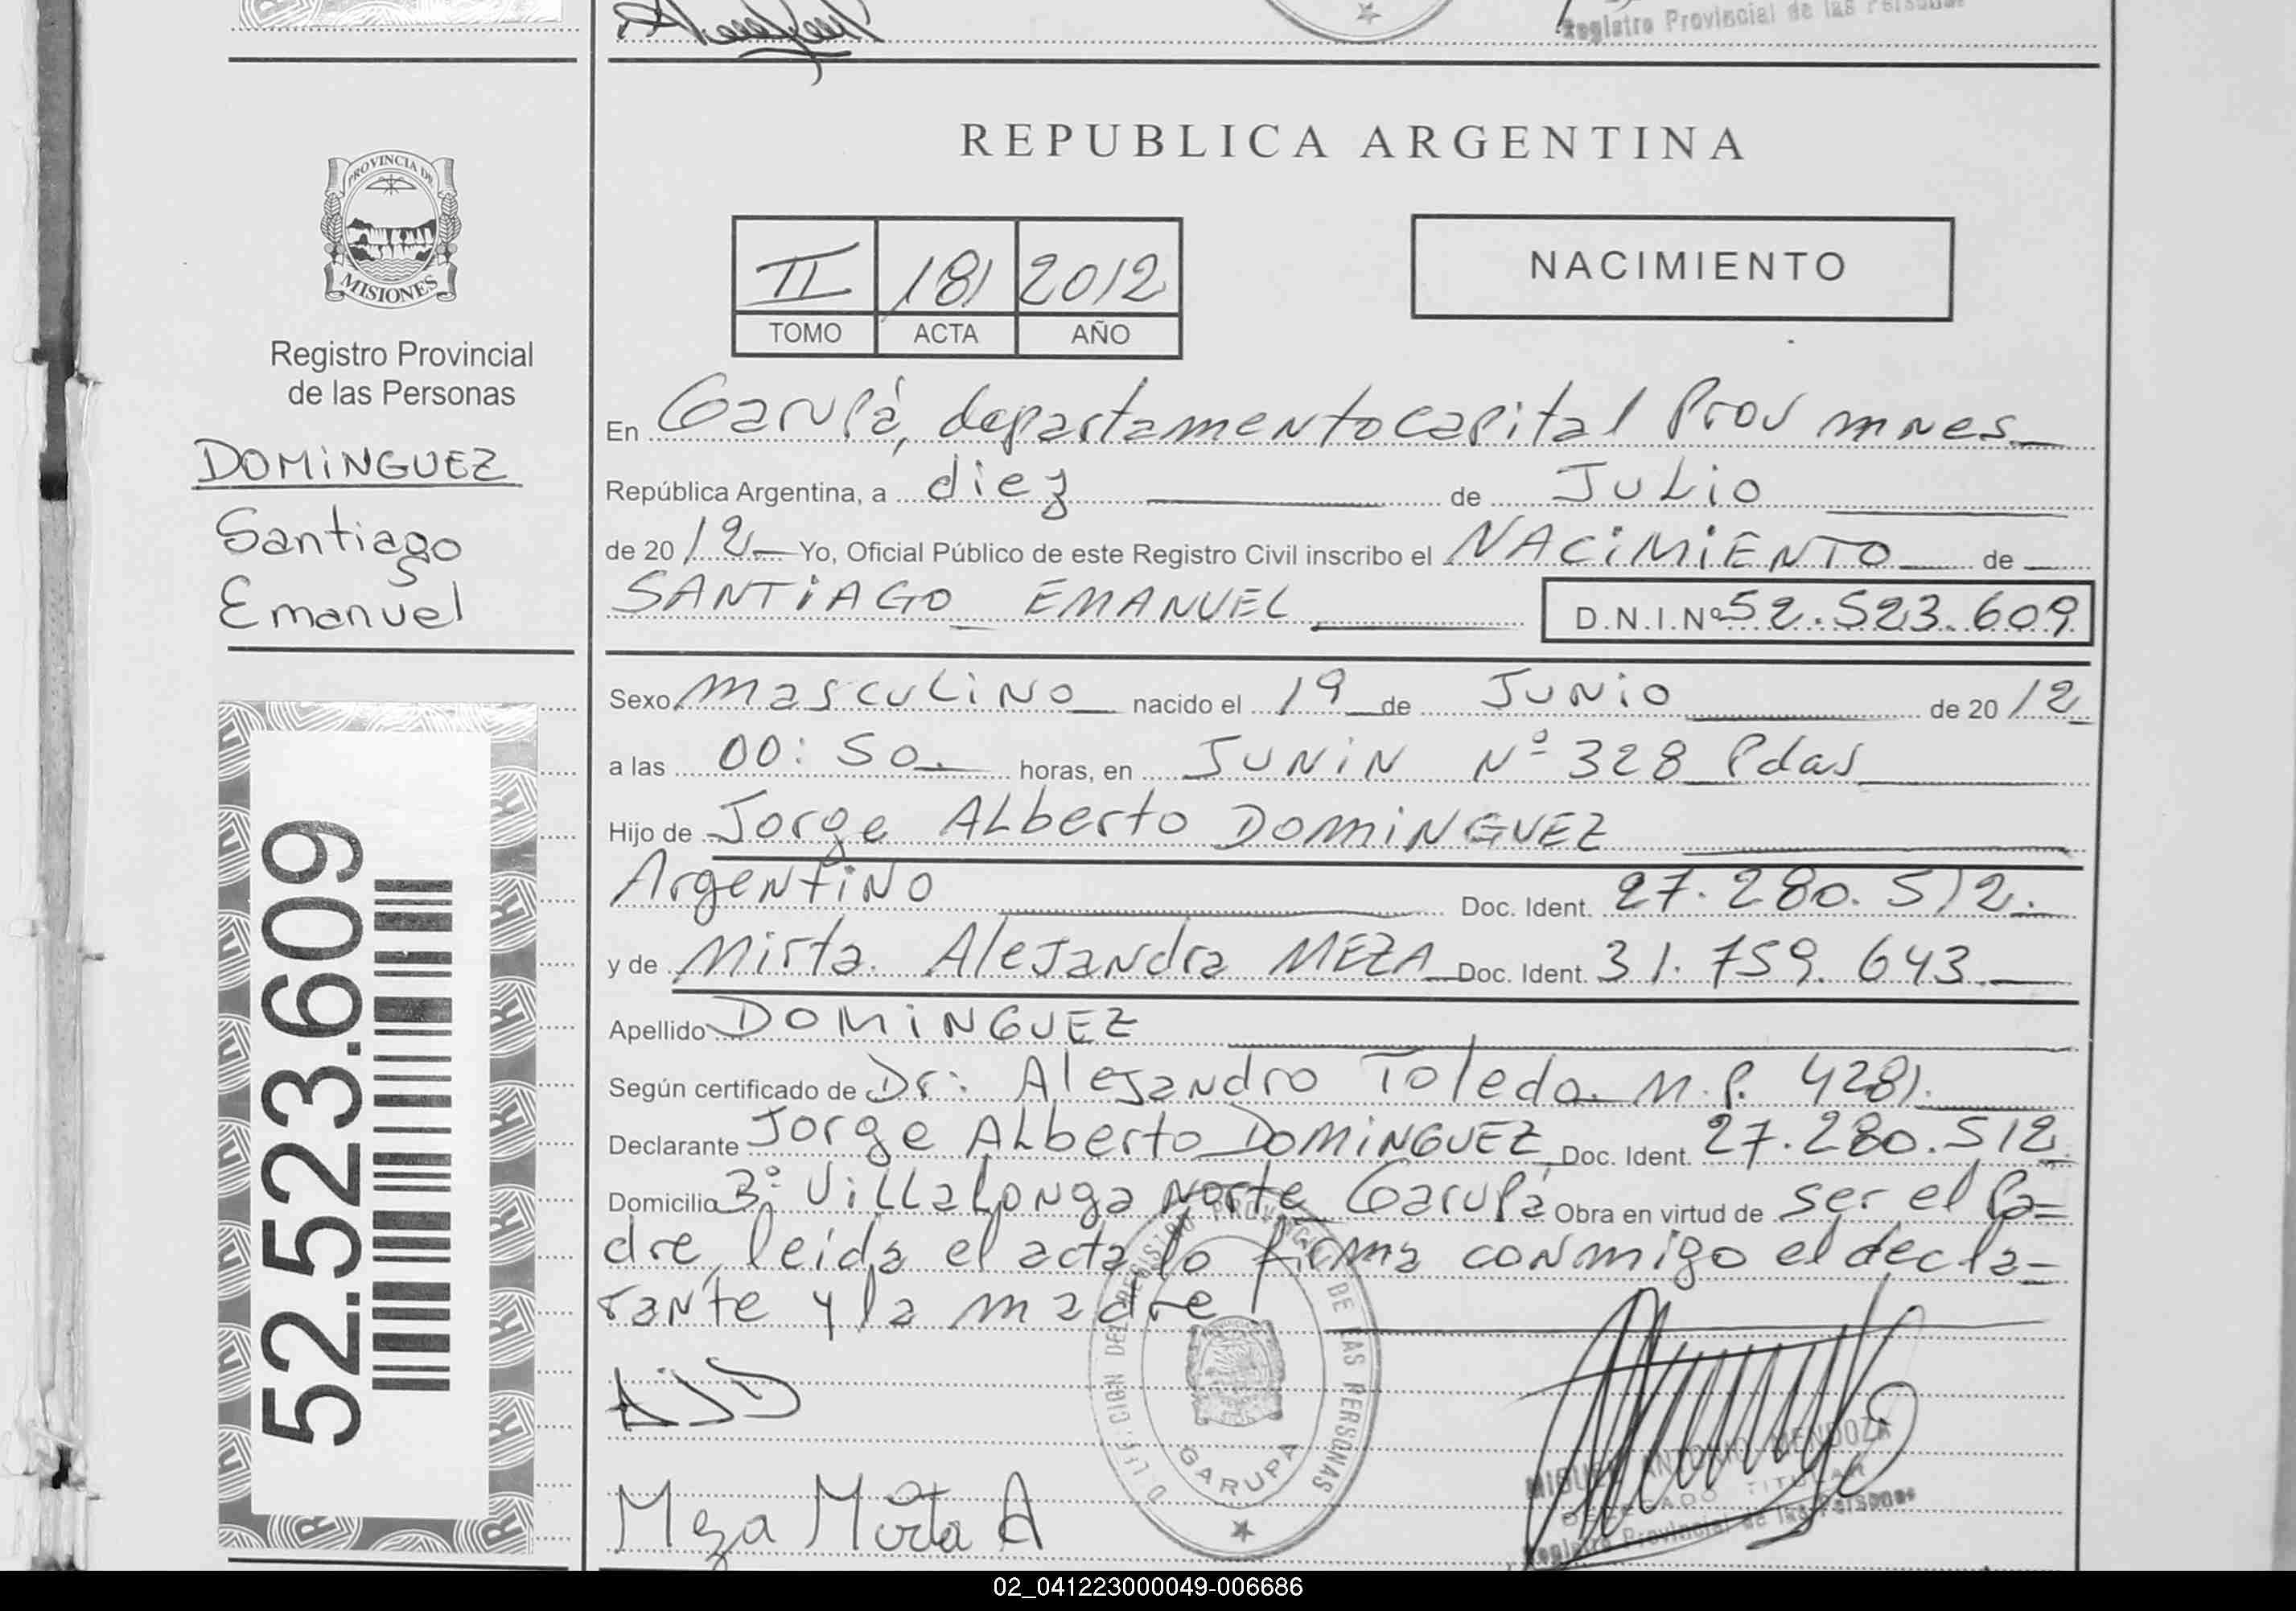 Registro Provincial de las Personas
REPUBLICA ARGENTINA
PROVINCIA DE
MISIONES
Registro Provincial
de las Personas
DOMiNGUEZ
Santiago
Emanuel
52.523.609
II 181 2012
TOMO ACTA AÑO
NACIMIENTO
En Garupá, departamento capital Prov mnes
República Argentina, a diez de Julio
de 2012 Yo, Oficial Público de este Registro Civil inscribo el NACiMiENTO de
SANTiAGO EMANUEL D.N.I.Nº 52.523.609
Sexo masculino nacido el 19 de Junio de 2012
a las 00:50. horas, en JUNiN Nº 328 Pdas
Hijo de Jorge Alberto DOMiNGUEZ
Argentino Doc. Ident. 27.280.512.
y de Mirta. Alejandra MEZA Doc. Ident. 31.759.643
Apellido DOMiNGUEZ
Según certificado de Dr: Alejandro Toledo. M.P. 4281.
Declarante Jorge Alberto DOMiNGUEZ Doc. Ident. 27.280.512
Domicilio 3º Villalonga Norte Garupá Obra en virtud de ser el Pa=
dre, leida el acta lo firma conmigo el decla=
rante y la madre
AJD
DELEGACION DEL REGISTRO PROVINCIAL DE LAS PERSONAS
GARUPA
Meza Mirta A
MIGUEL ANTONIO MENDOZA
DELEGADO TITULAR
Registro Provincial de las Personas
02_041223000049-006686